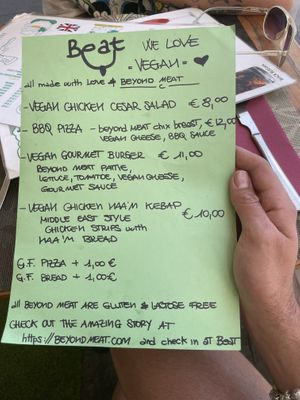 Beat
WE LOVE
= VEGAN =
all made with Love & BEYOND MEAT
- VEGAN CHICKEN CESAR SALAD € 8,00
- BBQ PIZZA - beyond MEAT chix breast, €12,00
VEGAN CHEESE, BBQ SAUCE
- VEGAN GOURMET BURGER € 11,00
BEYOND MEAT PATTIE,
LETTUCE, TOMATOE, VEGAN CHEESE,
GOURMET SAUCE
- VEGAN CHICKEN NAA'N KEBAP
€ 10,00
MIDDLE EAST STYLE
CHICKEN STRIPS WITH
NAA'N BREAD
G.F. PIZZA + 1,00 €
G.F. BREAD + 1,00€
all BEYOND MEAT ARE GLUTEN & LACTOSE FREE
CHECK OUT THE AMAZING STORY AT
https://BEYONDMEAT.COM and check in at Beat